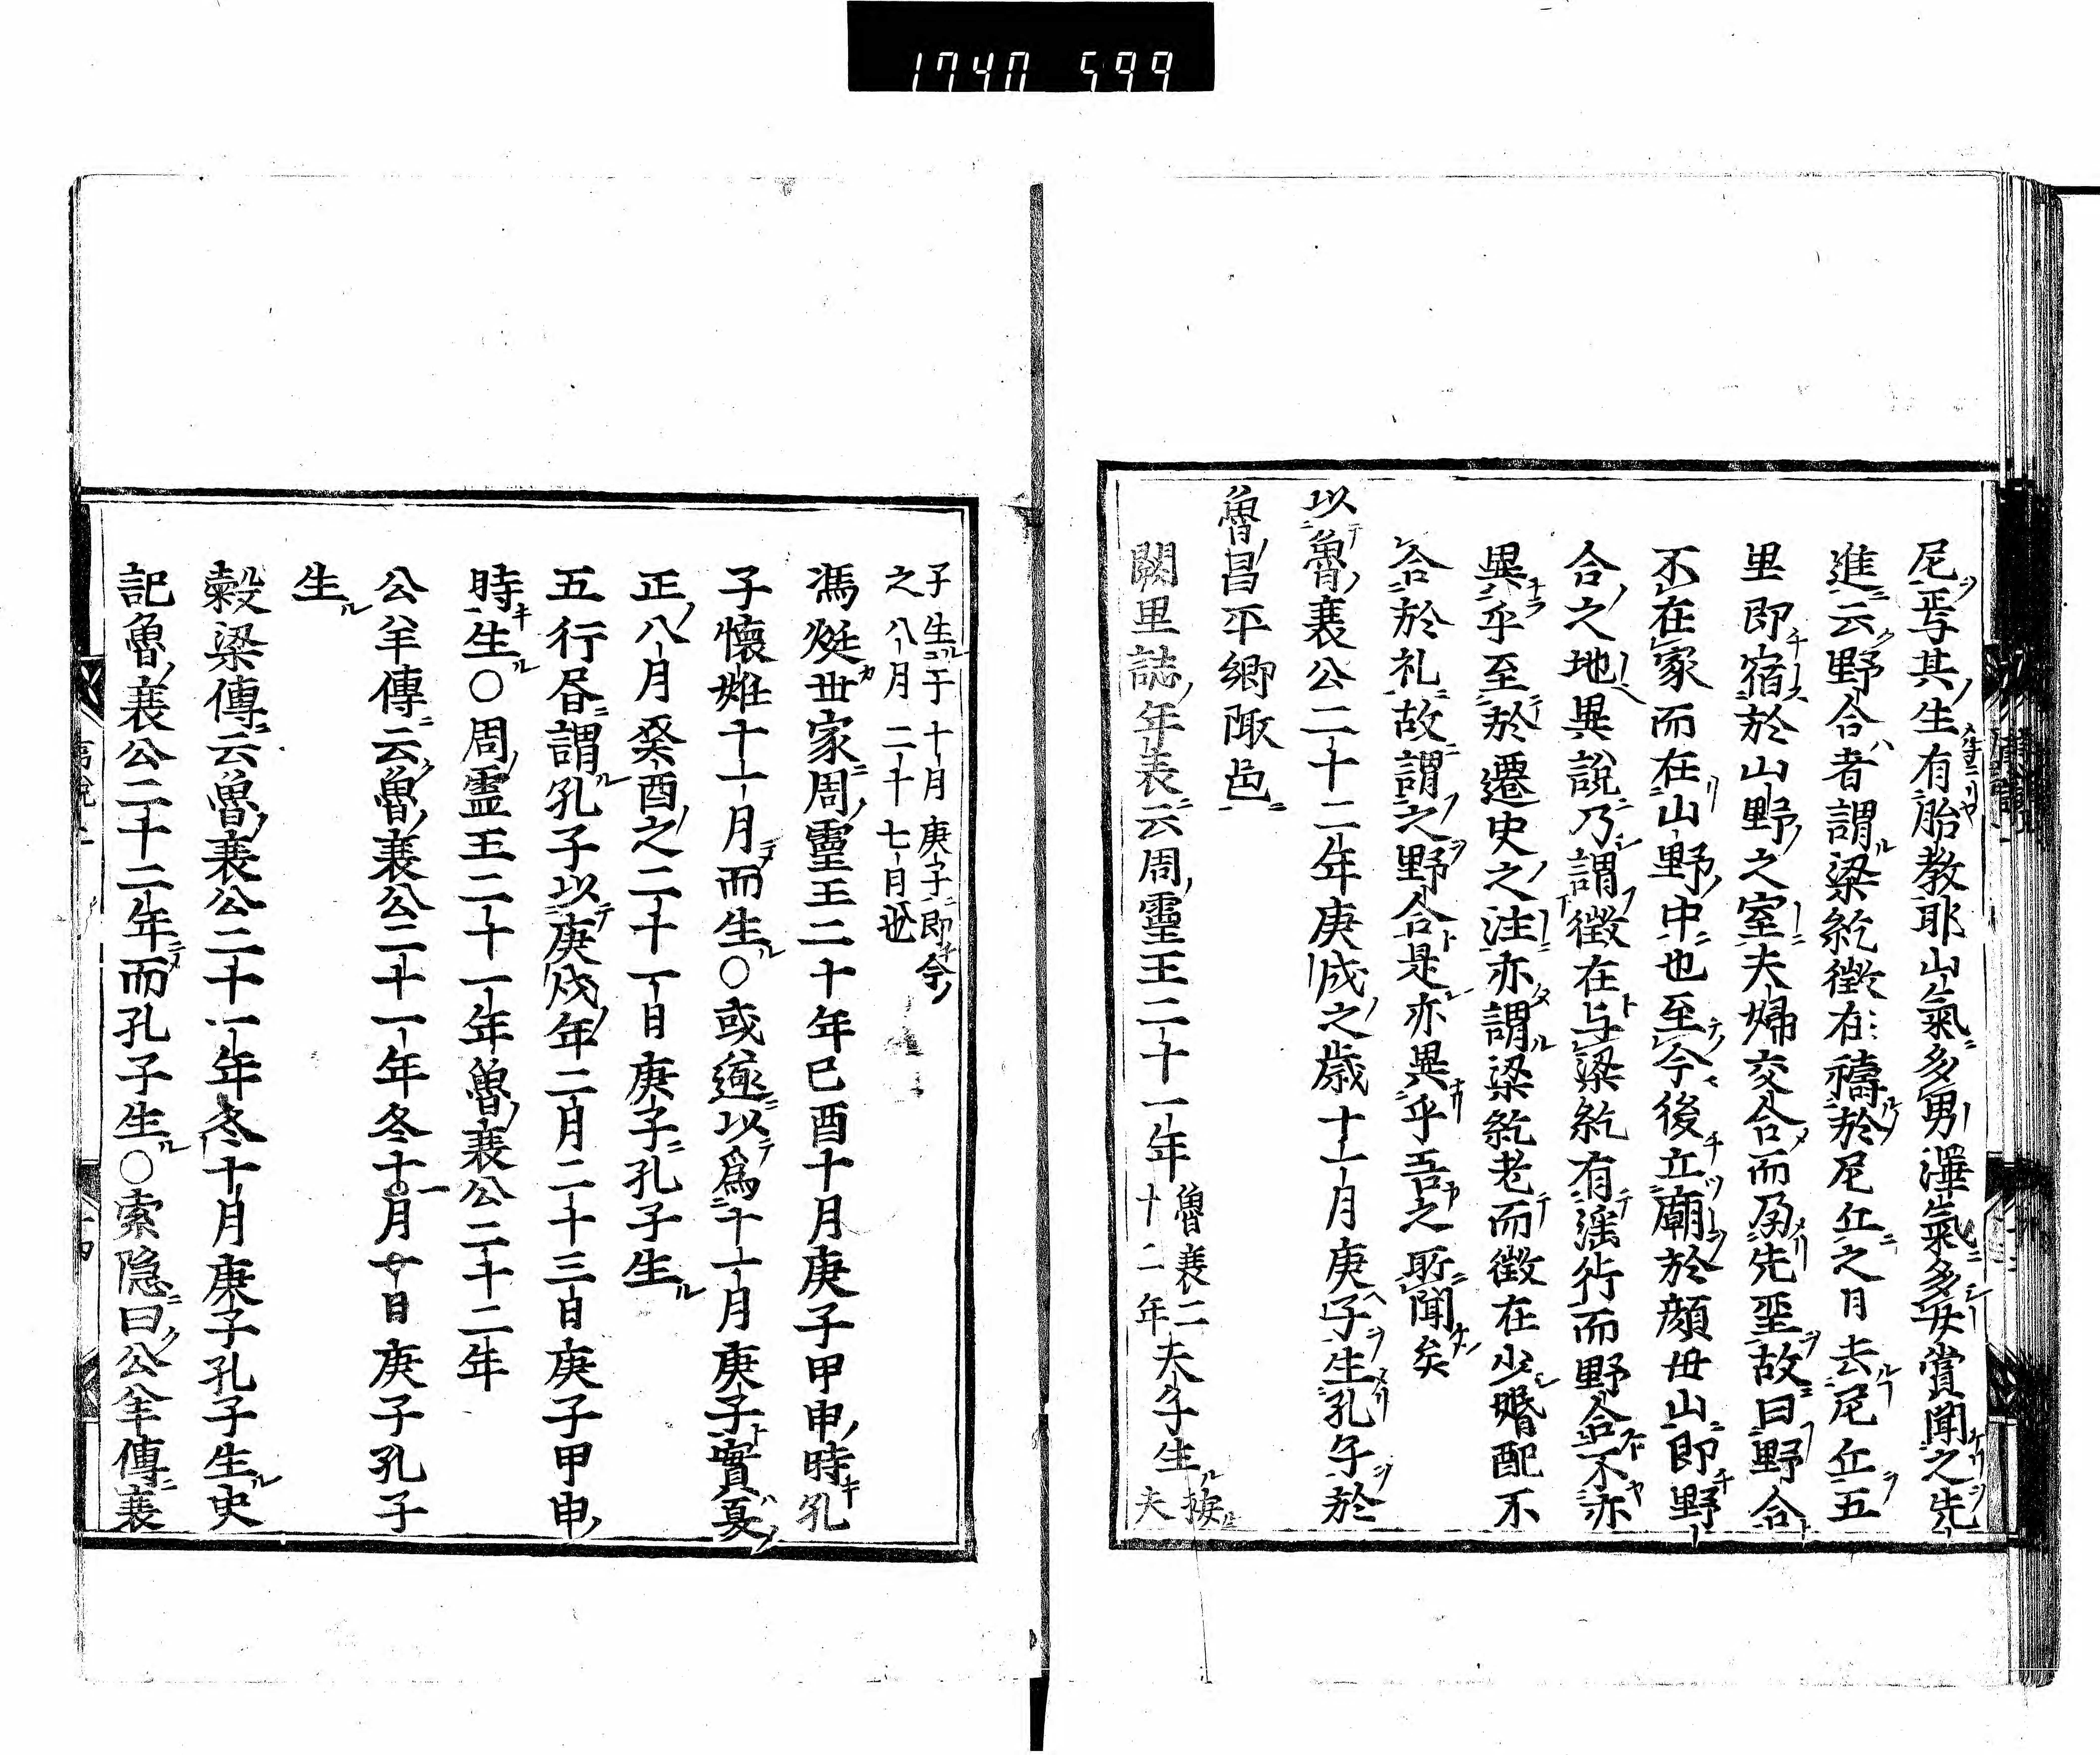 1740 599
尼焉其生有胎教耶山氣多男澤氣多女嘗聞之先
進云野合者謂梁紇徵在禱於尼丘之月去尼丘五
里即宿於山野之室夫婦交合而孕先聖故曰野合
不在家而在山野中也至今後立廟於顔母山即野
合之地異説乃謂徵在与梁紇有滛行而野合不亦
異乎至於遷史之注亦謂梁紇老而徵在少婚配不
合於礼故謂之野合是亦異乎吾之所聞矣
以魯襄公二十二年庚戌之歳十一月庚子生孔子於
魯昌平郷陬邑
闕里誌年表云周靈王二十一年魯襄二十二年夫子生按夫
子生于十月庚子即今
之八月二十七日也
馮㷌世家周靈王二十年己酉十月庚子甲申時孔
子懷姙十一月而生○或遂以爲十一月庚子實夏
正八月癸酉之二十一日庚子孔子生
五行昬謂孔子以庚戌年二月二十三日庚子甲申
時生○周靈王二十一年魯襄公二十二年
公羊傳云魯襄公二十一年冬十一月廿日庚子孔子
生
穀梁傳云魯襄公二十一年冬十月庚子孔子生史
記魯襄公二十二年而孔子生○索隐曰公羊傳襄